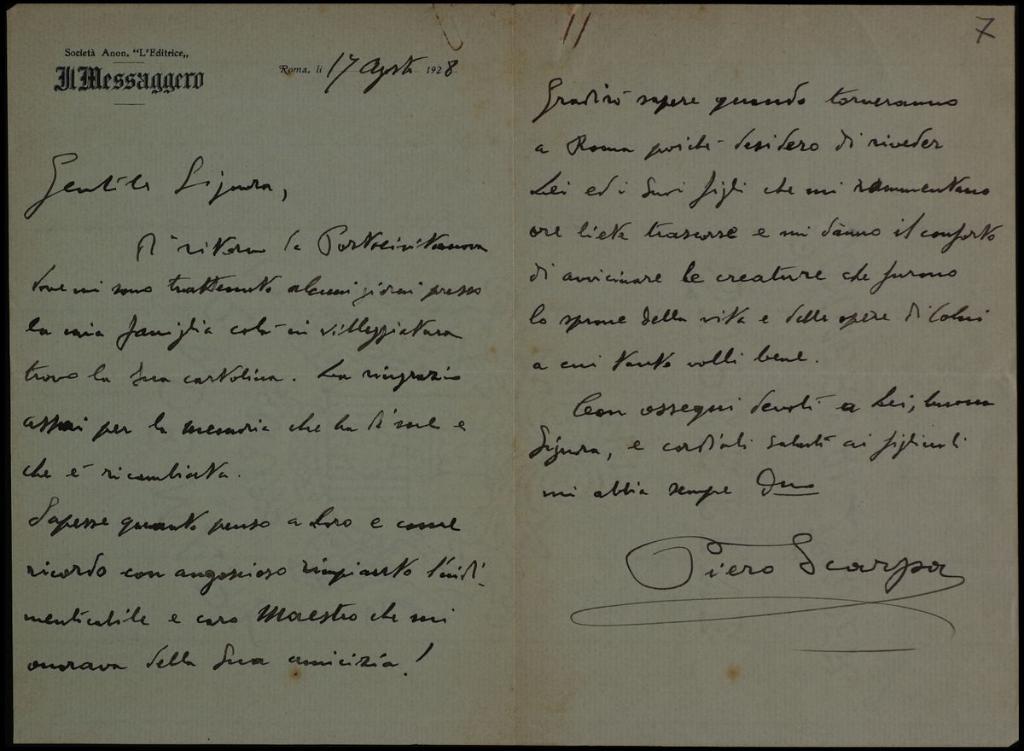 Società Anon. "L'Editrice„
Il Messaggero
Roma, li 17 Agosto 1928.
Gentile Signora,
Di ritorno da Portocivitanova
dove mi sono trattenuto alcuni giorni presso
la mia famiglia colà in villeggiatura
trovo la Sua cartolina. La ringrazio
assai per la memoria che ha di me e
che è ricambiata.
Sapesse quanto penso a Loro e come
ricordo con angoscioso rimpianto l'indi-
menticabile e caro Maestro che mi
onorava della Sua amicizia!
7
Gradirò sapere quando torneranno
a Roma poiché desidero di riveder
Lei ed i Suoi figli che mi rammentano
ore liete trascorse e mi dànno il conforto
di avvicinare le creature che furono
lo sprone della vita e delle opere di Colui
a cui tanto volli bene.
Con ossequi devoti a Lei, buona
Signora, e cordiali saluti ai figliuoli
mi abbia sempre Dmo
Piero Scarpa